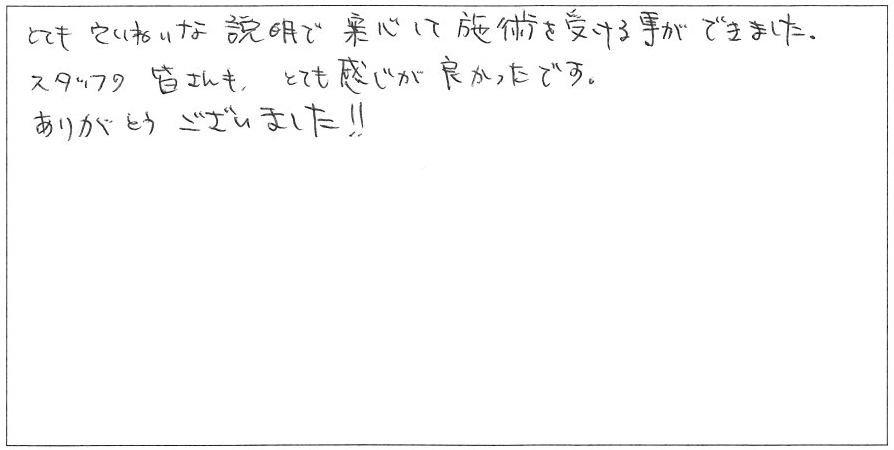 とても ていねいな 説明で 安心して 施術を受ける事が できました。
スタッフの 皆さんも、とても感じが 良かったです。
ありがとう ございました!!